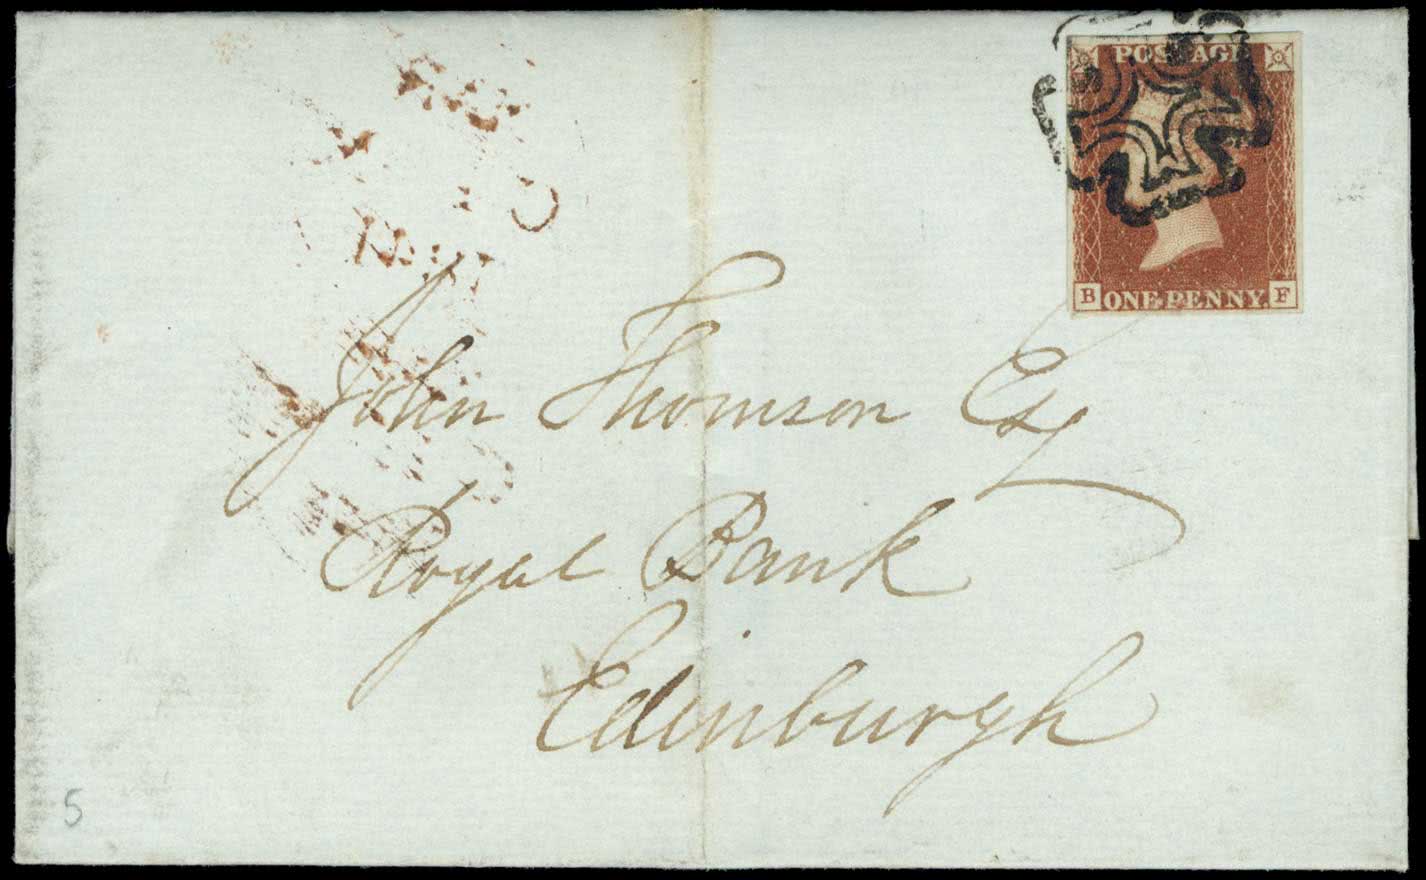 POSTAGE
B ONE PENNY. F
John Thomson Esq
Royal Bank
Edinburgh
5